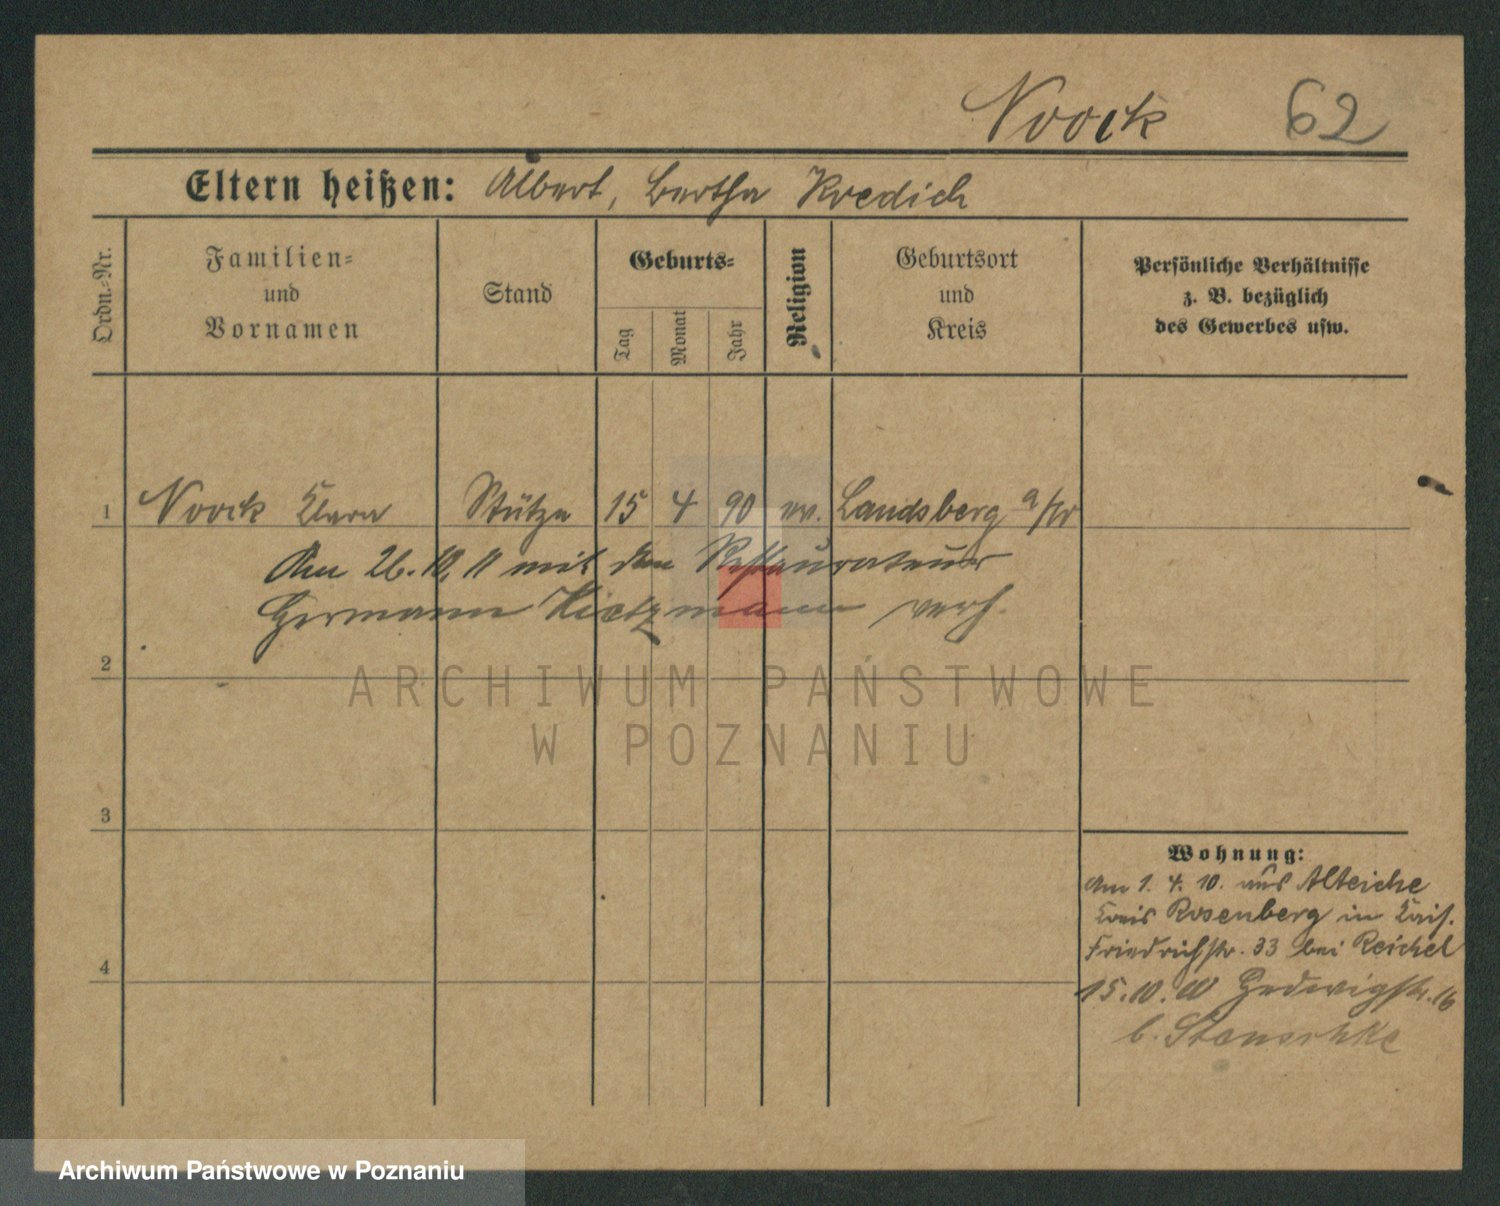 Noock 62
Eltern heißen: Albert, Bertha Kredich
Ordn.-Nr.
Familien-
und
Vornamen
Stand
Geburts-
Tag
Monat
Jahr
Religion
Geburtsort
und
Kreis
Persönliche Verhältnisse
z. B. bezüglich
des Gewerbes usw.
1 Noock Klara Stütze 15 4 90 ev. Landsberg a/W
Am 26. 10. 11 mit dem Restaurateur
Hermann Kietzmann verh.
2
3
4
Wohnung:
Am 1. 4. 10. aus Alteiche
Kreis Rosenberg in Kais.
Friedrichstr. 33 bei Reichel
15. 10. 10 Hedwigstr. 16
b. Stenschke
ARCHIWUM PAŃSTWOWE
W POZNANIU
Archiwum Państwowe w Poznaniu